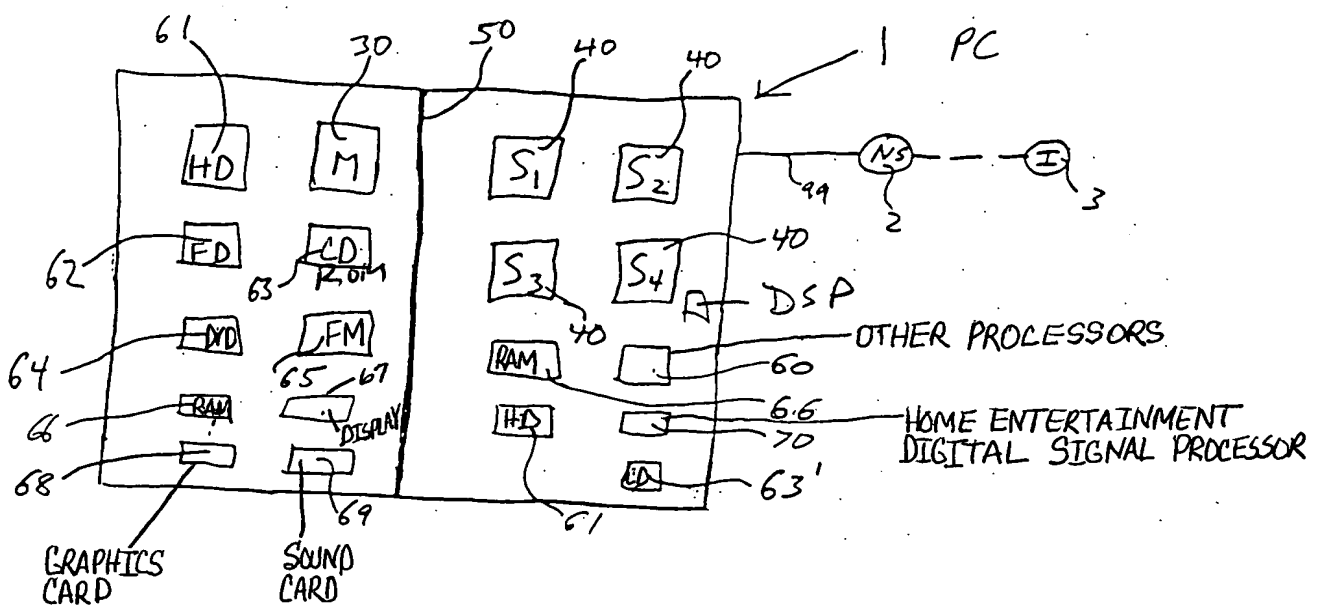 61
30
50
40
40
1 PC
HD
M
S1
S2
NS
I
99
2
3
62
FD
63
CD
ROM
S3
S4
40
40
DSP
64
DVD
FM
65
67
RAM
OTHER PROCESSORS
60
66
RAM
DISPLAY
HD
66
70
HOME ENTERTAINMENT
DIGITAL SIGNAL PROCESSOR
68
69
61
CD
63'
GRAPHICS
CARD
SOUND
CARD